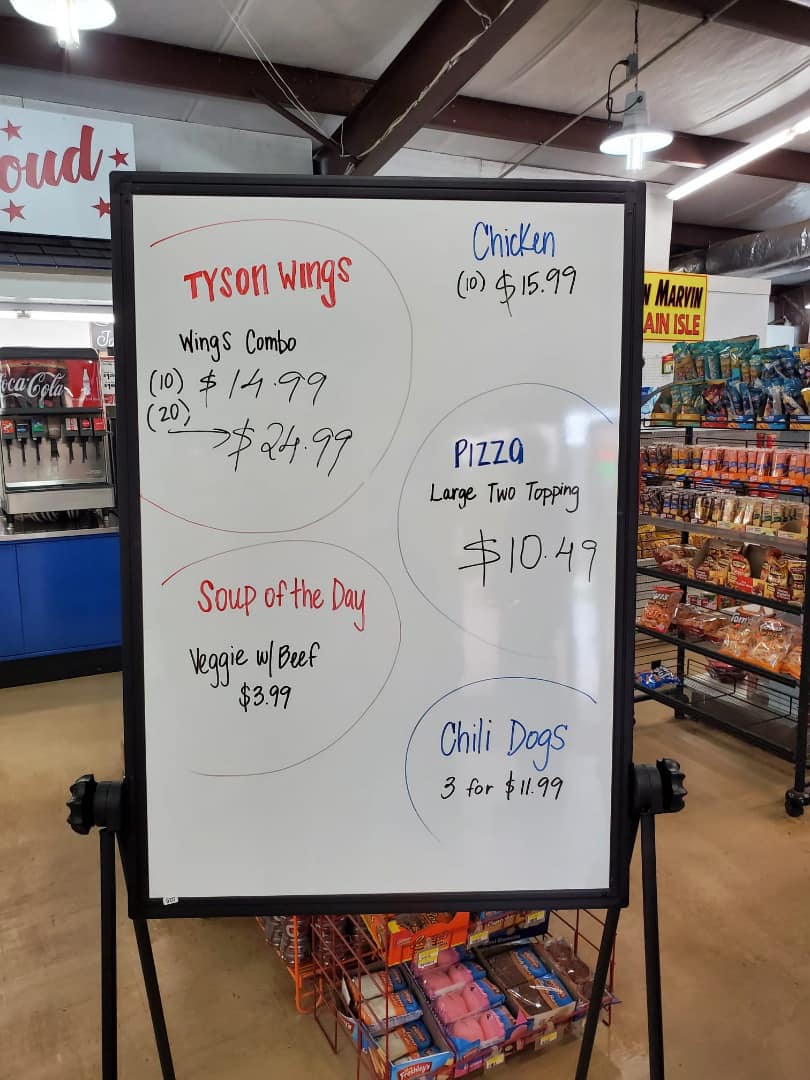 oud
Coca-Cola
TYSON Wings
Wings Combo
(10) $14.99
(20)
→ $24.99
Chicken
(10) $15.99
MARVIN
AIN ISLE
PIZZA
Large Two Topping
$10.49
Soup of the Day
Veggie w/ Beef
$3.99
Chili Dogs
3 for $11.99
Tom's
Freshley's